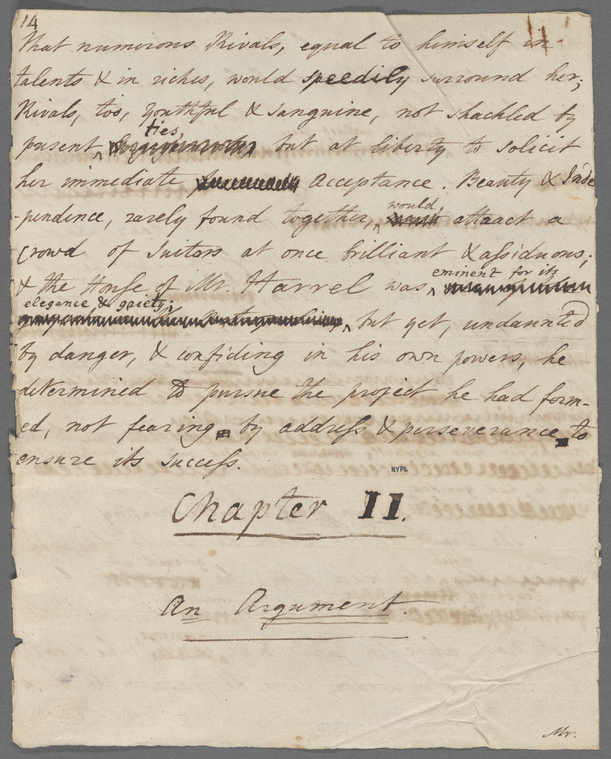 14
That numirous Rivals, equal to himself in
talents & in riches, would speedily surround her;
Rivals, too, youthful & sanguine, not shackled by
ties,
present but at liberty to solicit
her immediate Acceptance. Beauty & Inde
-pendence, rarely found together, would attract a
crowd of Suitors at once brilliant & assiduous;
eminent for its
& the House of Mr. Harrel was
elegance & gaiety;
but yet, undaunted
by danger, & confiding in his own powers, he
determined to pursue the project he had form-
ed, not fearing by address & perseverance to
ensure its success.
NYPL
Chapter II.
An Argument.
Mr.